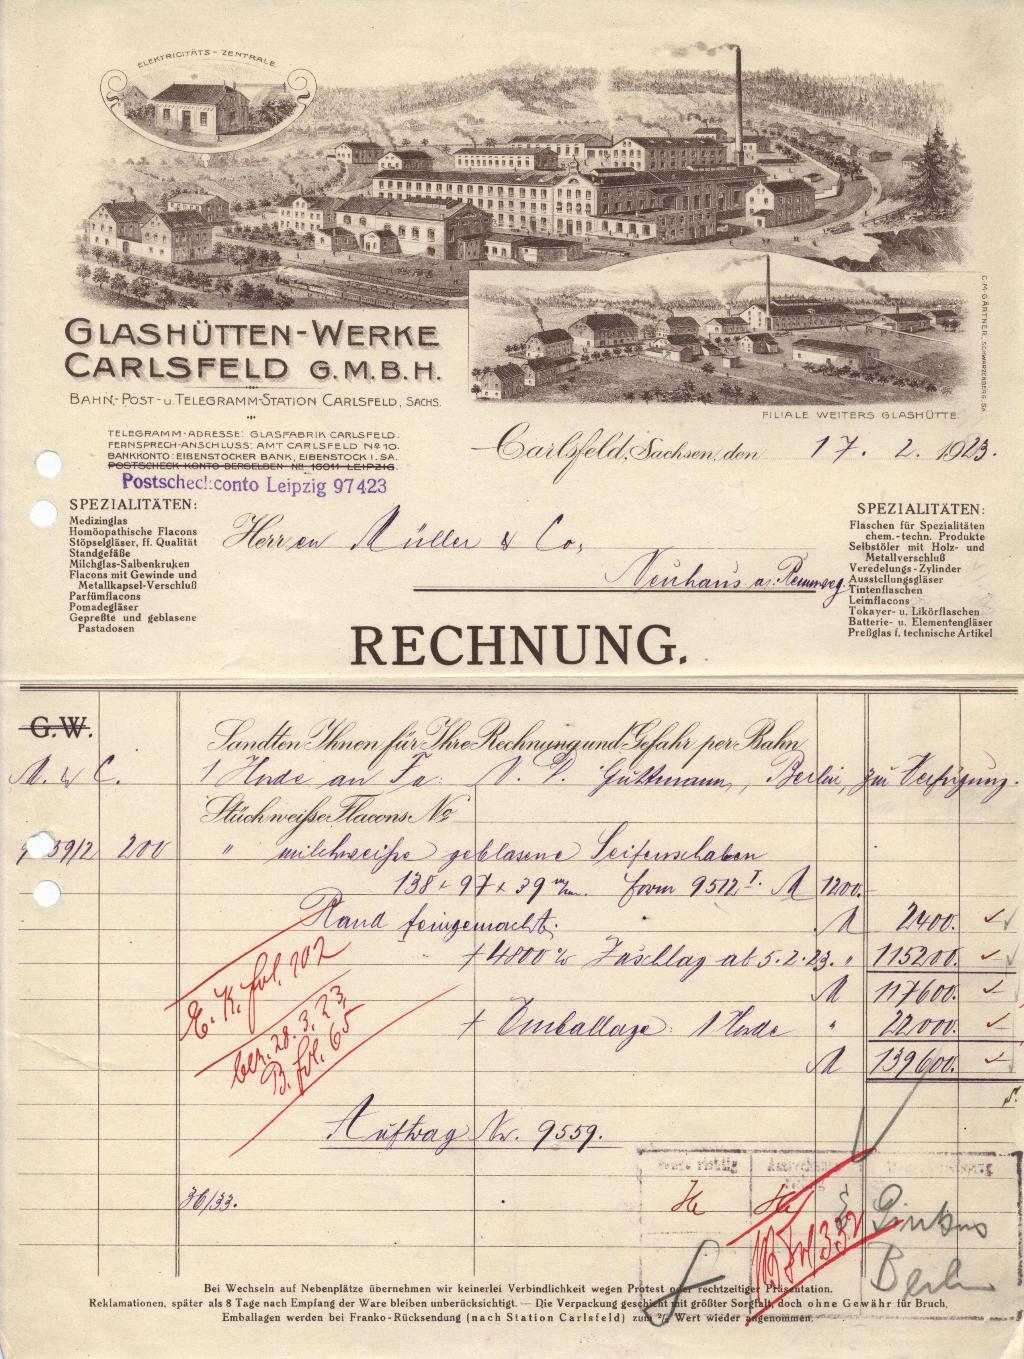 ELEKTRICITÄTS-ZENTRALE
GLASHÜTTEN-WERKE
CARLSFELD G.M.B.H.
BAHN-, POST- u. TELEGRAMM-STATION CARLSFELD, SACHS.
C. M. GÄRTNER, SCHWARZENBERG, SA.
FILIALE WEITERS GLASHÜTTE.
TELEGRAMM-ADRESSE: GLASFABRIK CARLSFELD.
FERNSPRECH-ANSCHLUSS: AMT CARLSFELD No 10.
BANKKONTO: EIBENSTOCKER BANK, EIBENSTOCK I. SA.
POSTSCHECK-KONTO DERSELBEN No 16011 LEIPZIG.
Postscheckconto Leipzig 97423
Carlsfeld, Sachsen, den 17. 2. 1923.
SPEZIALITÄTEN:
Medizinglas
Homöopathische Flacons
Stöpselgläser, ff. Qualität
Standgefäße
Milchglas-Salbenkruken
Flacons mit Gewinde und
Metallkapsel-Verschluß
Parfümflacons
Pomadegläser
Gepreßte und geblasene
Pastadosen
Herren Müller & Co,
Neuhaus a. Rennweg.
SPEZIALITÄTEN:
Flaschen für Spezialitäten
chem.-techn. Produkte
Selbstöler mit Holz- und
Metallverschluß
Veredelungs-Zylinder
Ausstellungsgläser
Tintenflaschen
Leimflacons
Tokayer- u. Likörflaschen
Batterie- u. Elementengläser
Preßglas f. technische Artikel
RECHNUNG.
G.W.
Sandten Ihnen für Ihre Rechnung und Gefahr per Bahn
M. & C. 1 Horde an Fa: Guttmann, Berlin, zur Verfügung.
Stück weiße Flacons No
59/2 200 " milchweiße geblasene Seifenschaben
138 x 97 x 39 m/m. form 9512 I. M 1200.
Rand feingemacht. M 2400.
+ 4800 % Zuschlag ab 5.2.23. " 115200.
M 117600.
+ Emballage: 1 Horde " 22000.
M 139600.
E. K. fol. 102
bez. 28. 3. 23.
B. fol. 65
Auftrag Nr. 9559.
36/33.
Pinkus
Berlin
Bei Wechseln auf Nebenplätze übernehmen wir keinerlei Verbindlichkeit wegen Protest oder rechtzeitiger Präsentation.
Reklamationen, später als 8 Tage nach Empfang der Ware bleiben unberücksichtigt. — Die Verpackung geschieht mit größter Sorgfalt, doch ohne Gewähr für Bruch.
Emballagen werden bei Franko-Rücksendung (nach Station Carlsfeld) zum 2/3 Wert wieder angenommen.